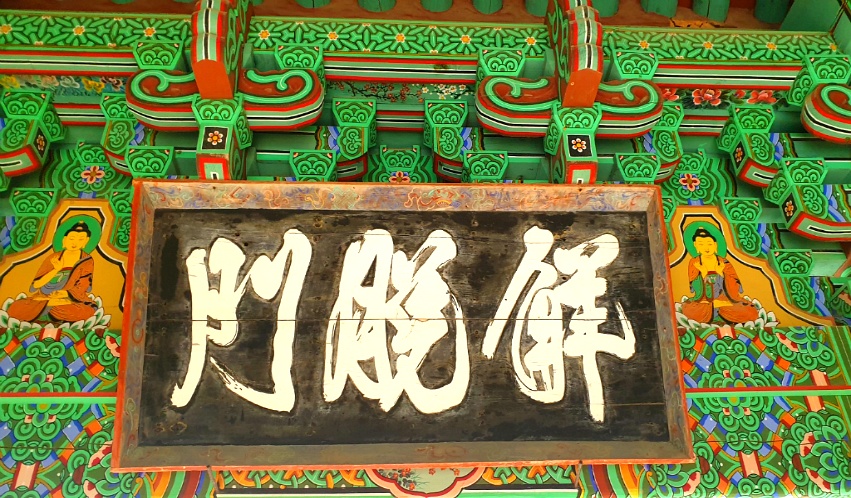 解脫門